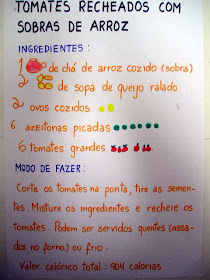 TOMATES RECHEADOS COM
SOBRAS DE ARROZ
INGREDIENTES:
1 de chá de arroz cozido (sobra)
2 de sopa de queijo ralado
2 ovos cozidos
6 azeitonas picadas
6 tomates grandes
MODO DE FAZER:
Corte os tomates na ponta, tire as semen-
tes. Misture os ingredientes e recheie os
tomates. Podem ser servidos quentes (assa-
dos no forno) ou frio.
Valor calórico total: 904 calorias